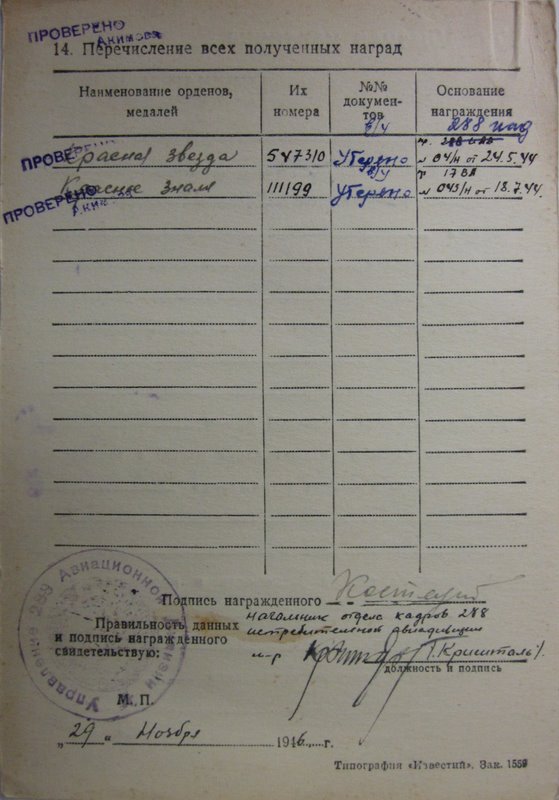 ПРОВЕРЕНО
Акимова
14. Перечисление всех полученных наград
Наименование орденов, медалей
Их номера
№№ документов
Основание награждения
288 иад
ПРОВЕРЕНО
Красная Звезда 547310 Утеряно № 04/н от 24.5.44
17 ВА
ПРОВЕРЕНО
Акимова
Красное Знамя 111199 Утеряно № 043/н от 18.7.44.
Подпись награжденного
Правильность данных
и подпись награжденного
свидетельствую:
Начальник отдела кадров 288
истребительной авиадивизии
м-р (Кришталь).
должность и подпись
Управление 288 Авиационной Дивизии
М. П.
„29“ Ноября 1946 г.
Типография «Известий». Зак. 1559